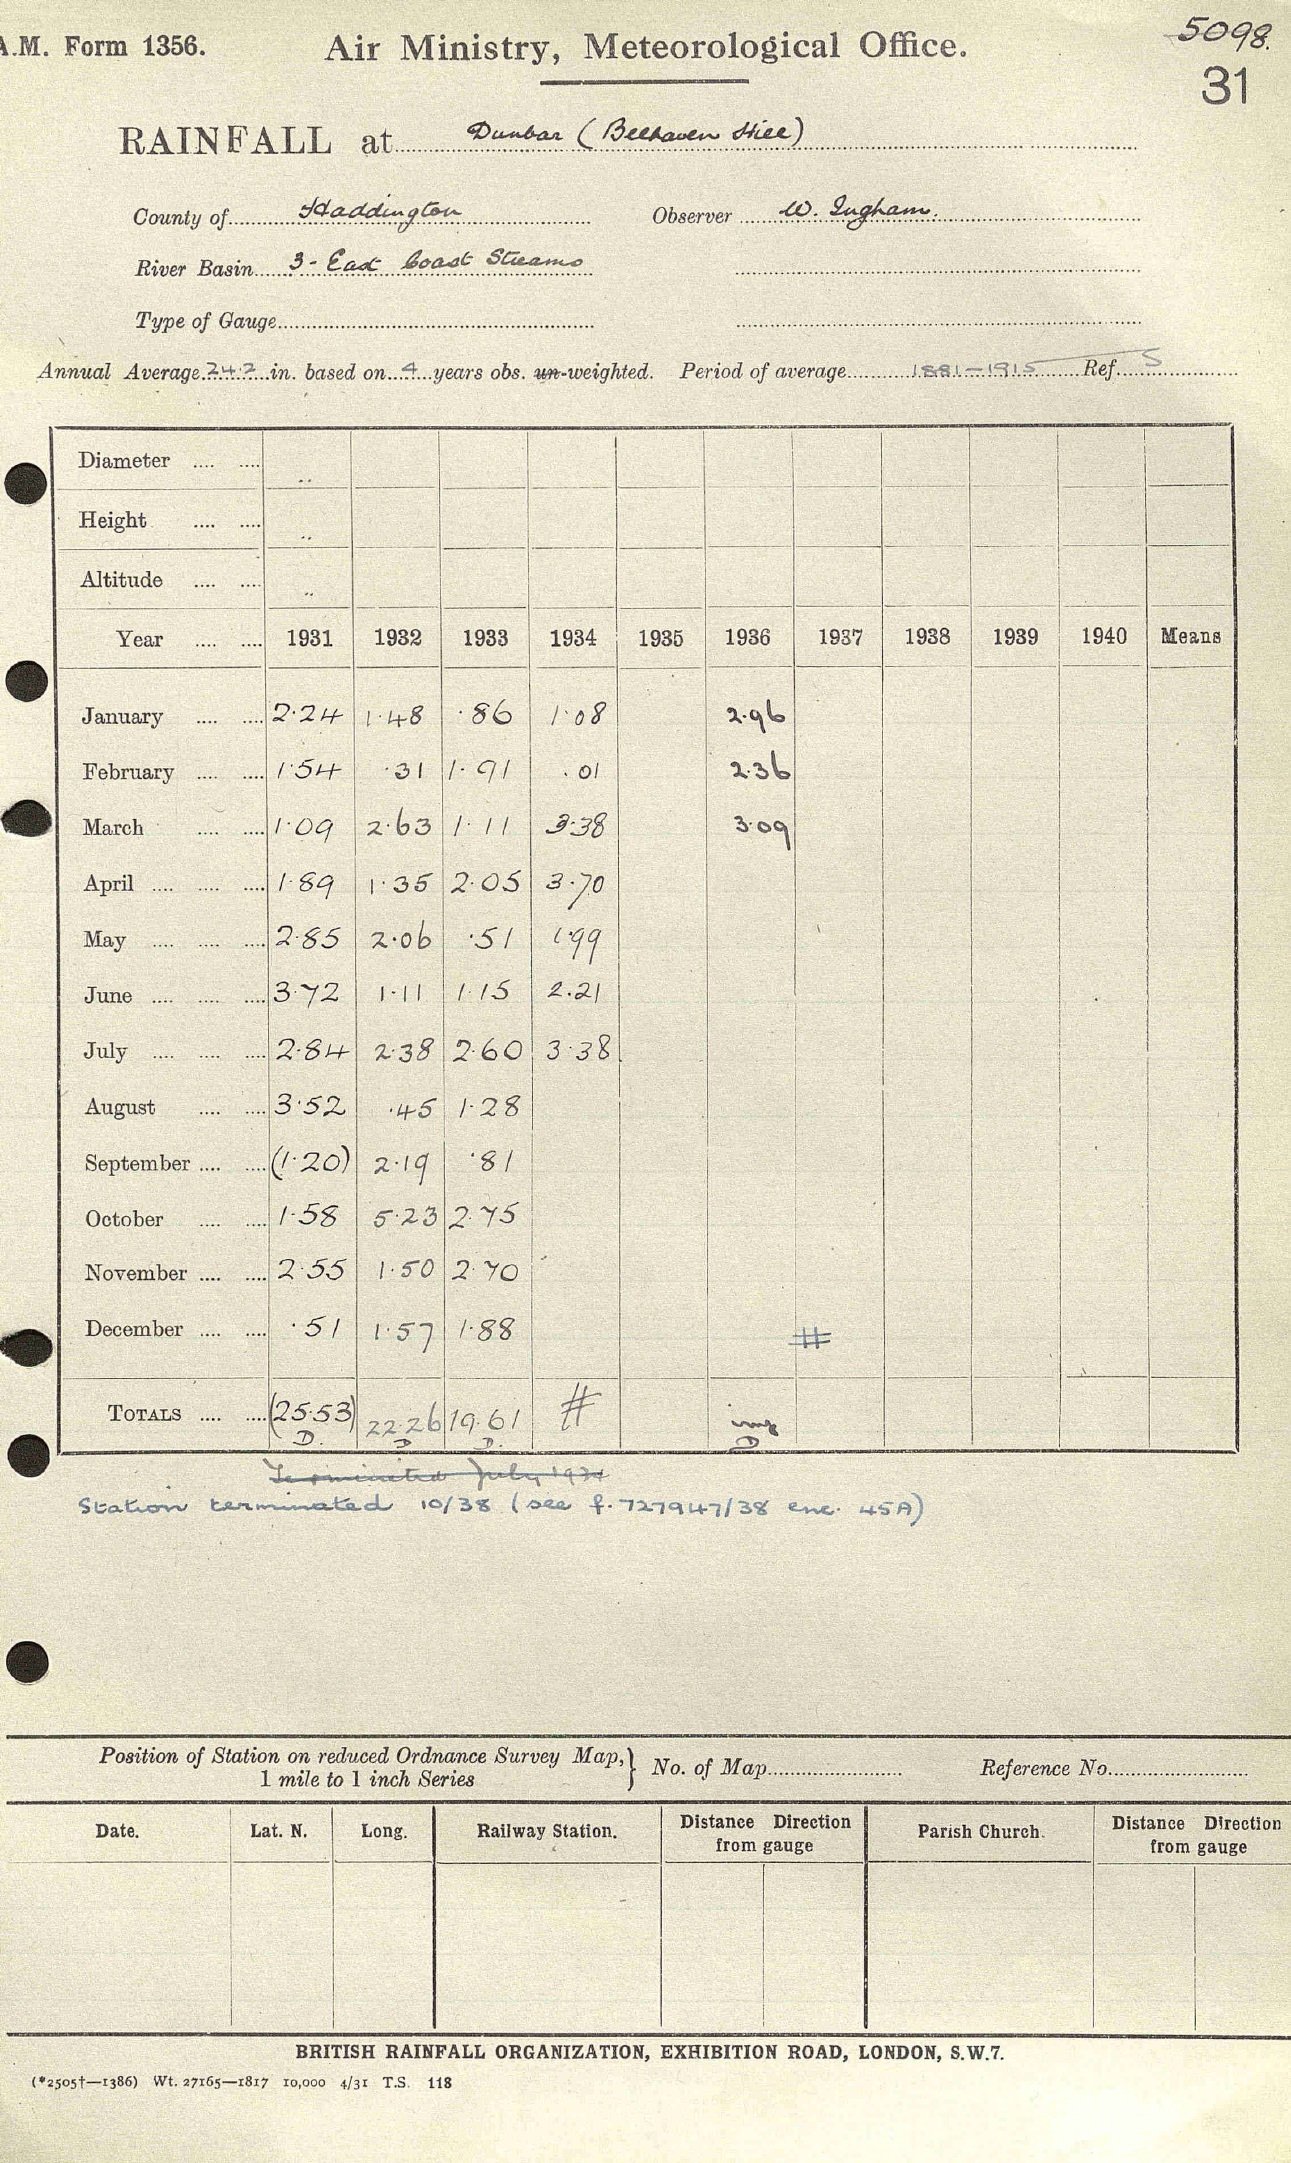 A.M. Form 1356.
Air Ministry, Meteorological Office.
5098.
31
RAINFALL at Dunbar (Belhaven Hill)
County of Haddington Observer W. Ingham.
River Basin 3- East Coast Streams
Type of Gauge
Annual Average 24.2 in. based on 4 years obs. un-weighted. Period of average 1881-1915 Ref. 5
Diameter .... ....
Height .... ....
Altitude .... ....
Year .... .... 1931 1932 1933 1934 1935 1936 1937 1938 1939 1940 Means
January .... .... 2.24 1.48 .86 1.08 2.96
February .... .... 1.54 .31 1.91 .01 2.36
March .... .... 1.09 2.63 1.11 3.38 3.09
April .... .... .... 1.89 1.35 2.05 3.70
May .... .... .... 2.85 2.06 .51 1.99
June .... .... .... 3.72 1.11 1.15 2.21
July .... .... .... 2.84 2.38 2.60 3.38
August .... .... 3.52 .45 1.28
September .... .... (1.20) 2.19 .81
October .... .... 1.58 5.23 2.75
November .... .... 2.55 1.50 2.70
December .... .... .51 1.57 1.88 #
TOTALS .... .... (25.53) 22.26 19.61 #
D. D D. D
Terminated July 1934
Station terminated 10/38 (see f. 727947/38 enc. 45A)
Position of Station on reduced Ordnance Survey Map, } No. of Map Reference No.
1 mile to 1 inch Series
Date. Lat. N. Long. Railway Station. Distance Direction from gauge Parish Church. Distance Direction from gauge
BRITISH RAINFALL ORGANIZATION, EXHIBITION ROAD, LONDON, S.W.7.
(*2505†—1386) Wt. 27165—1817 10,000 4/31 T.S. 118